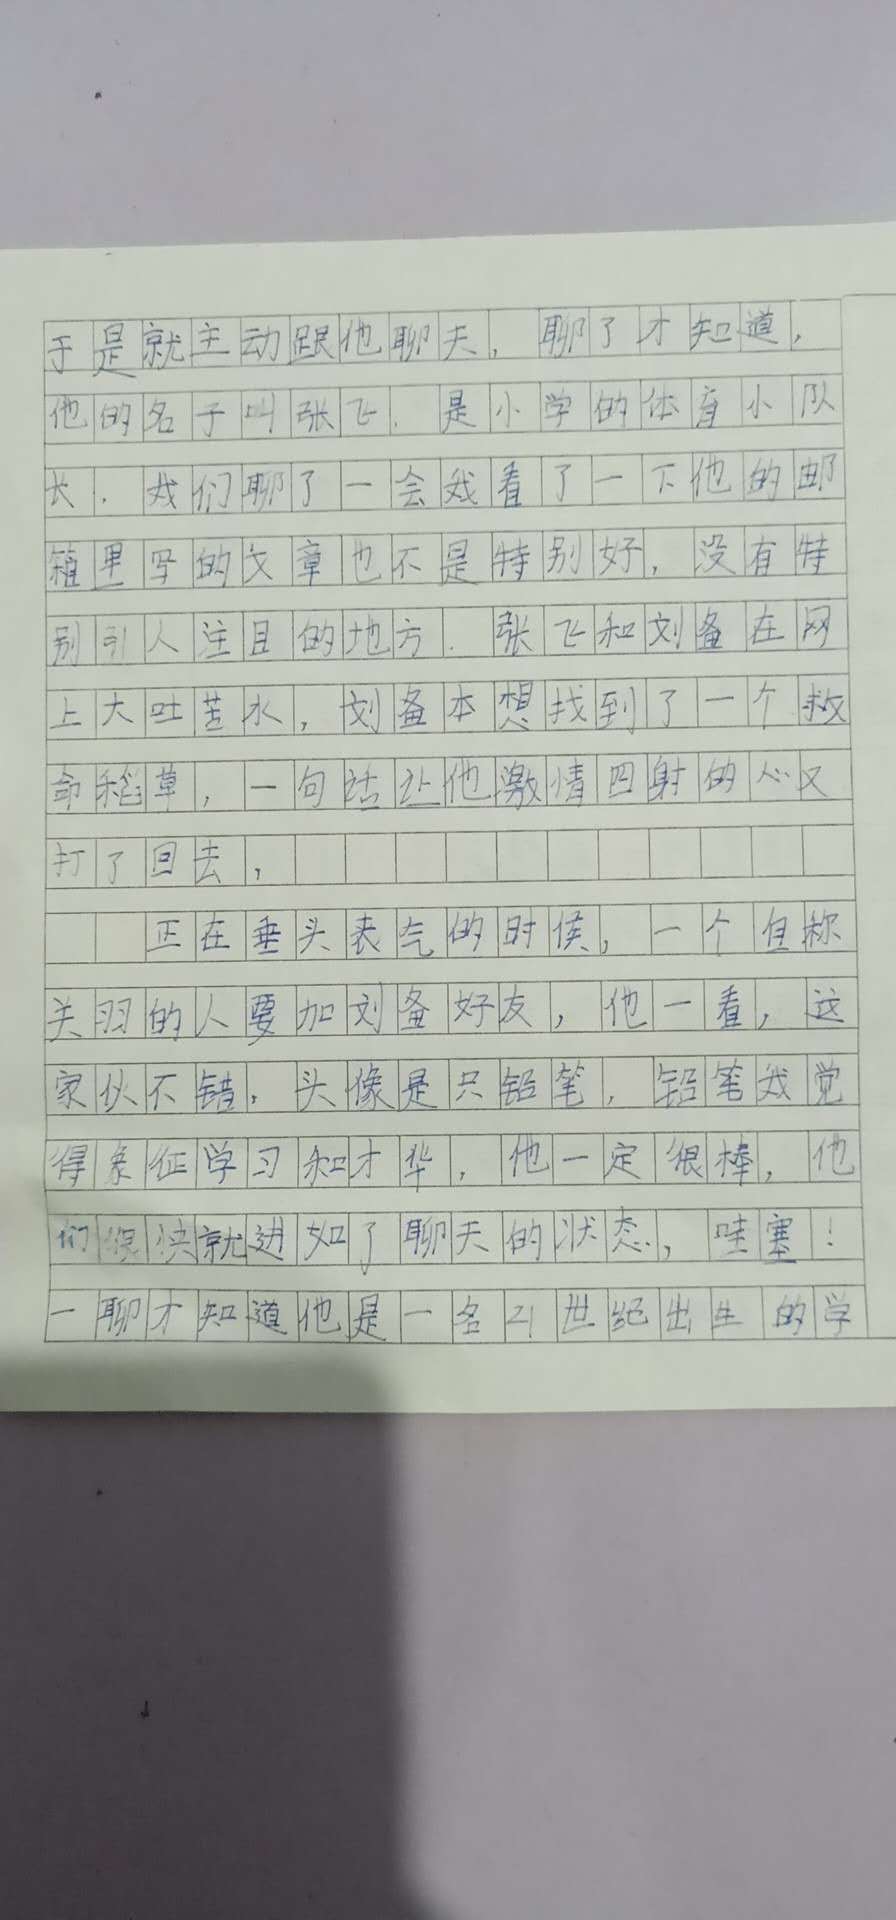 于是就主动跟他聊天，聊了才知道，
他的名子叫张飞．是小学的体育小队
长．我们聊了一会我看了一下他的邮
箱里写的文章也不是特别好，没有特
别引人注目的地方．张飞和刘备在网
上大吐苦水，刘备本想找到了一个救
命稻草，一句话让他激情四射的心又
打了回去，
正在垂头丧气的时候，一个自称
关羽的人要加刘备好友，他一看，这
家伙不错．头像是只铅笔，铅笔我觉
得象征学习和才华，他一定很棒，他
们很快就进如了聊天的状态，哇塞！
一聊才知道他是一名21世纪出生的学